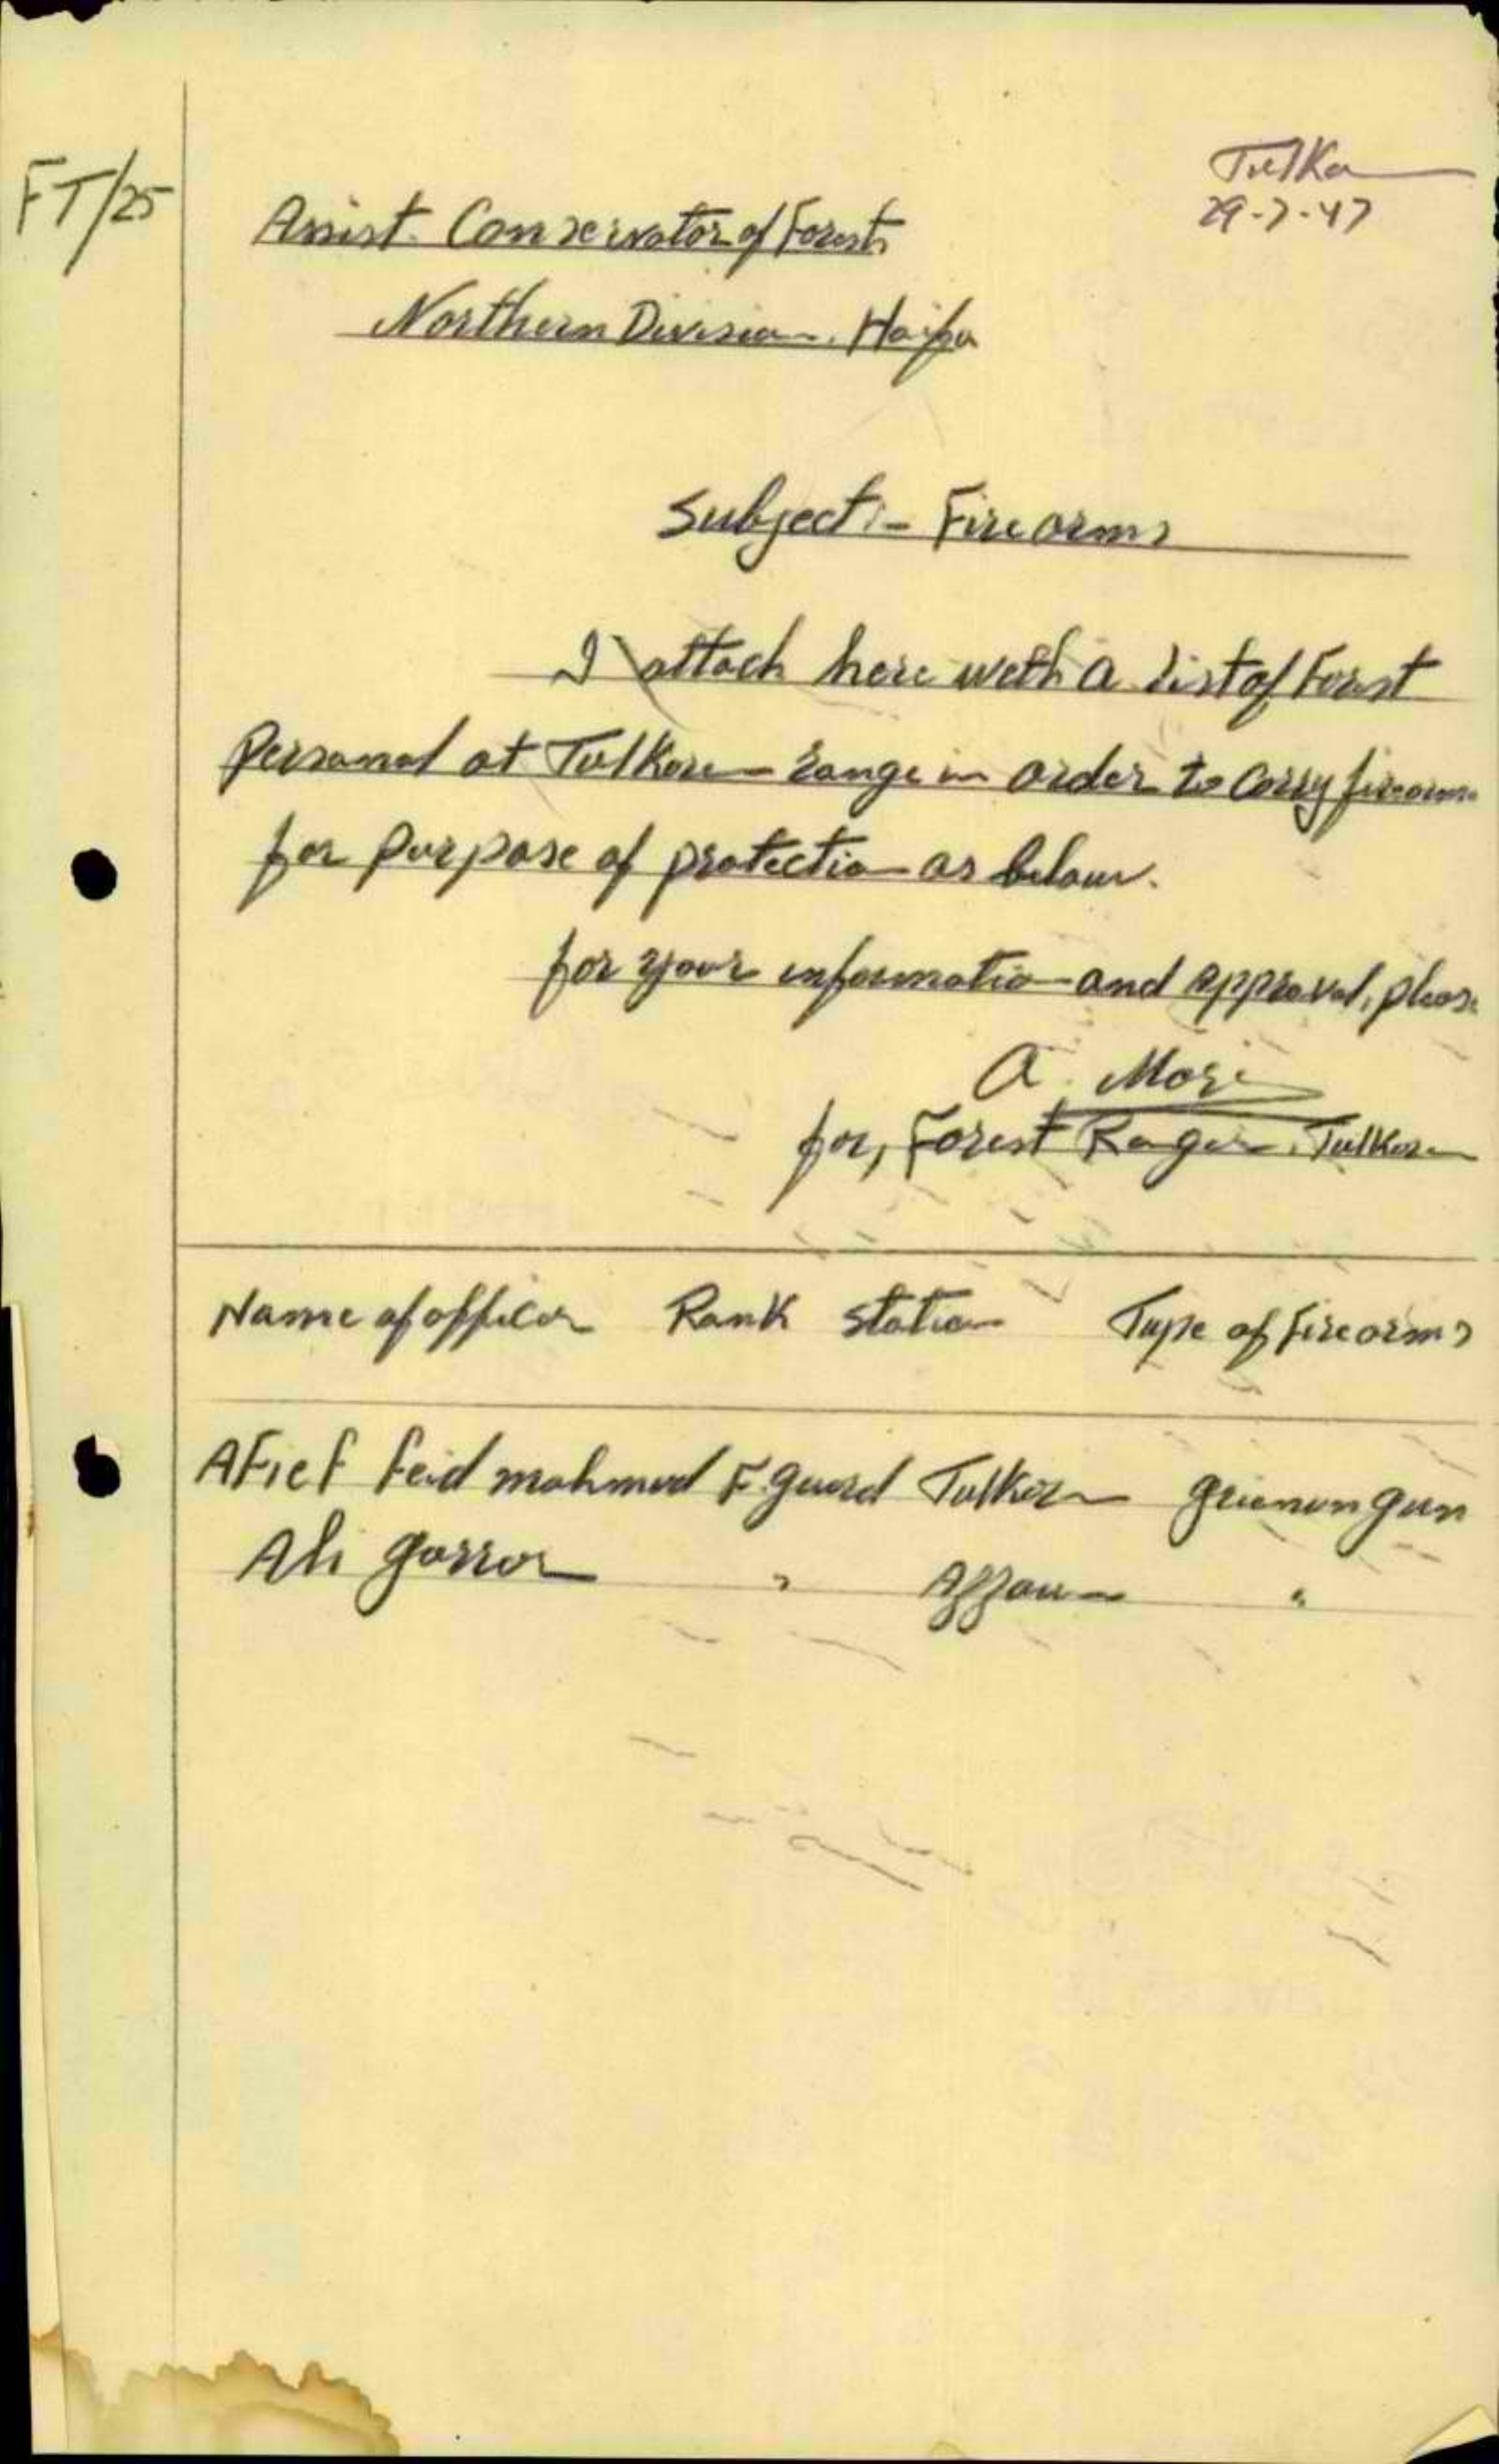 FT/25
Tulka
29-7-47
Assist. Conservator of Forests
Northern Division. Haifa
Subject:- Fire arms
I attach here with a list of Forest
Personal at Tulkarem range in order to carry firearms
for purpose of protection as below.
for your information and approval, please
A.
for, Forest Ranger. Tulkarem
Name of officer Rank station Type of Firearms
AFief Feid mahmud F. guard Tulkarem gun
Ali " Azzoun "